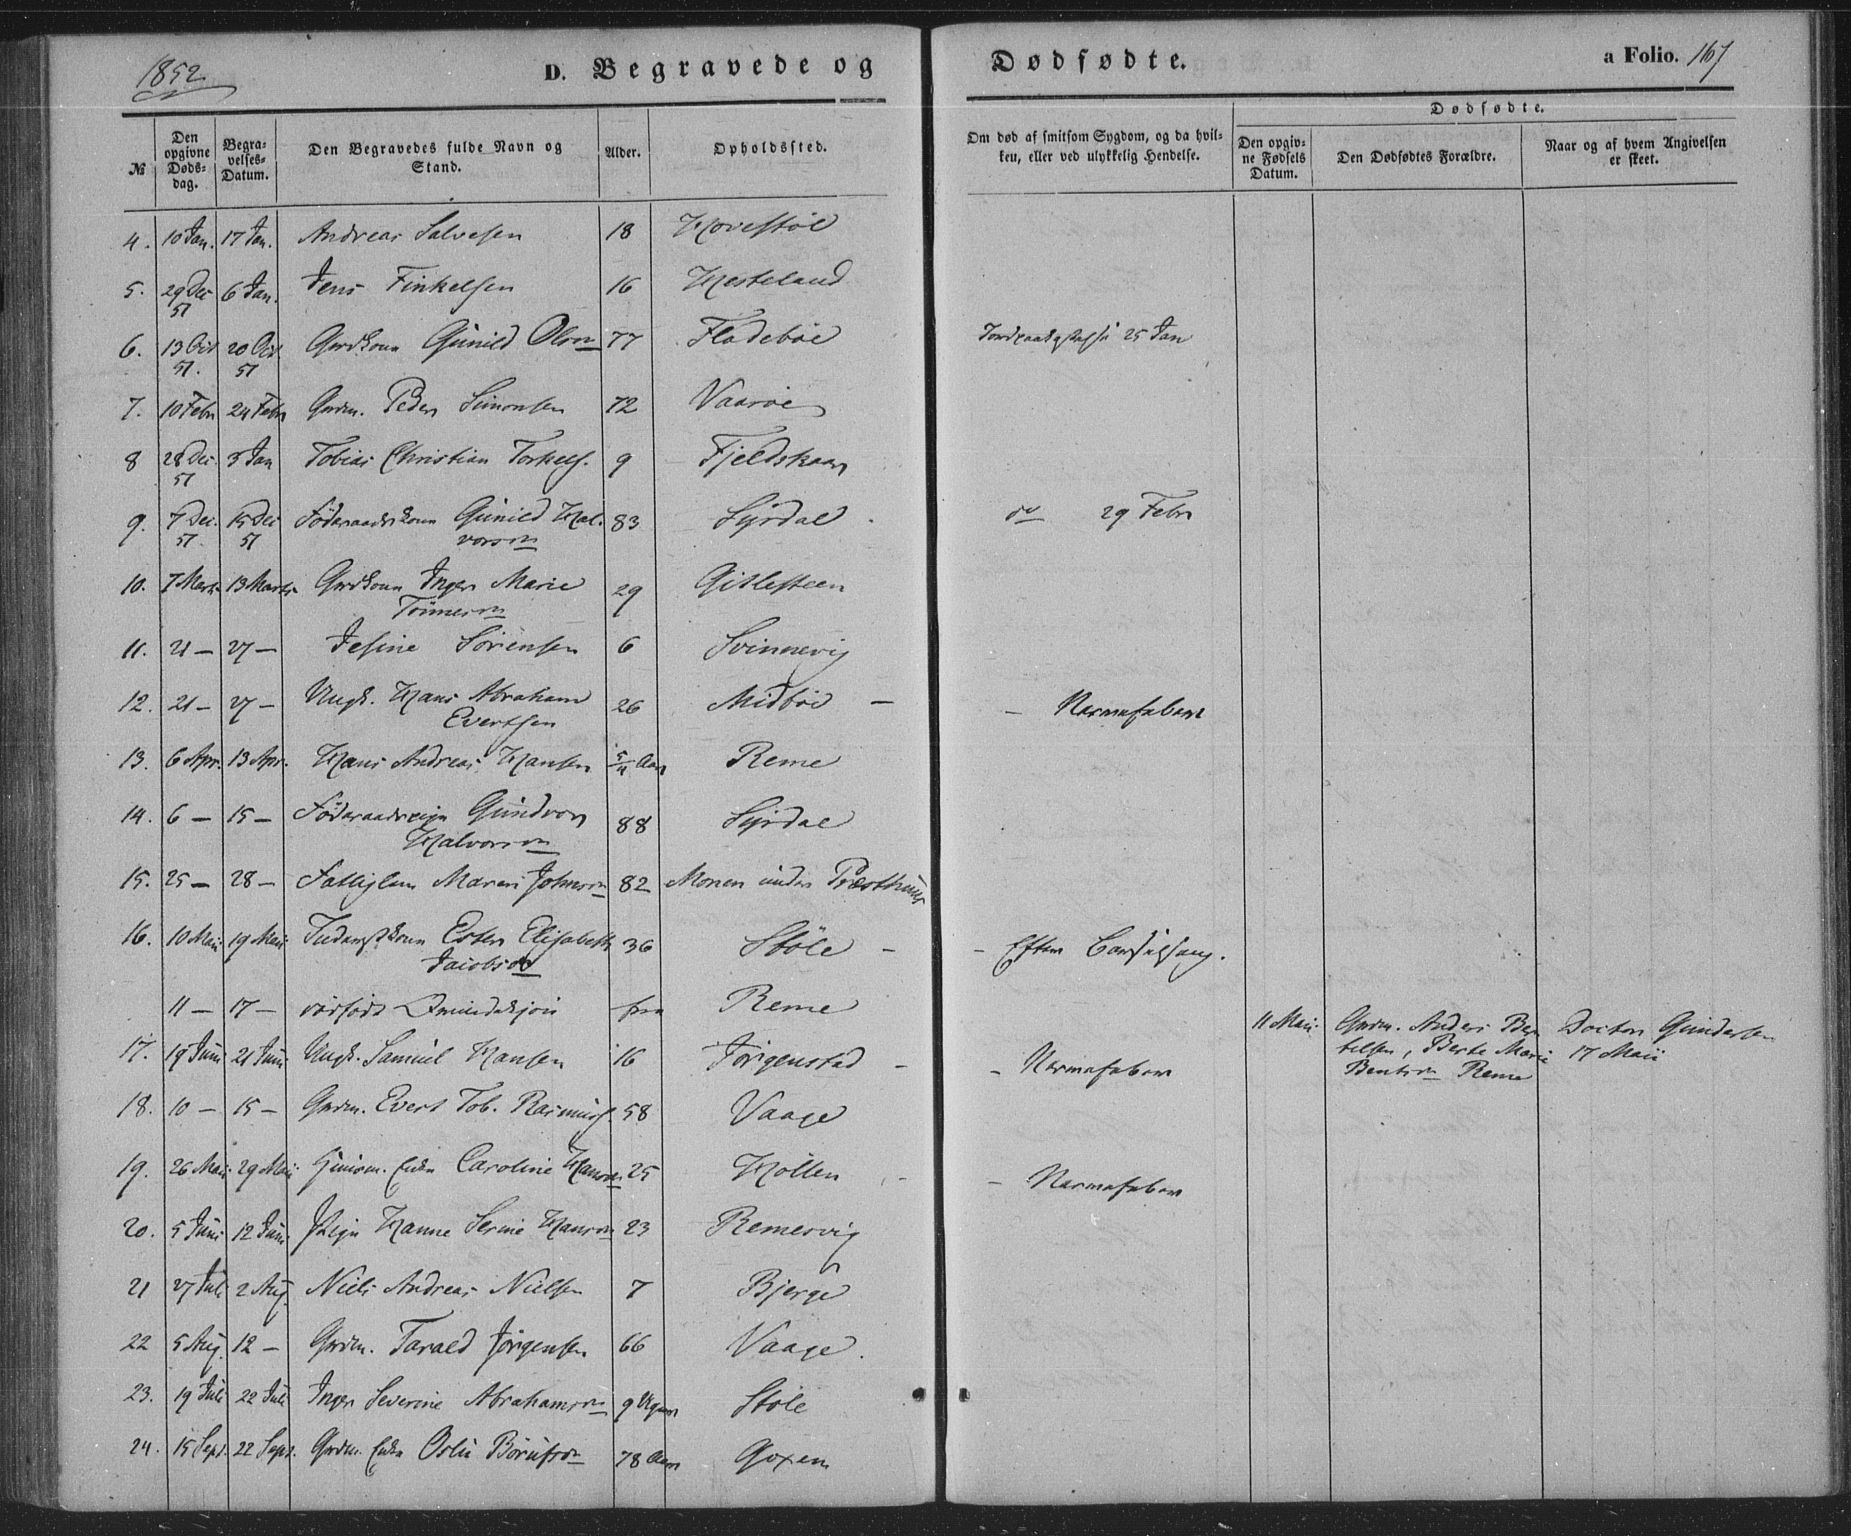 1852
D. Begravede og Dødfødte. a Folio. 167
№ Den opgivne Døds-dag. Begra-velses-Datum. Den Begravedes fulde Navn og Stand. Alder. Opholdssted. Om død af smitsom Sygdom, og da hvil-ken, eller ved ulykkelig Hendelse. Dødfødte. Den opgiv-ne Fødsels Datum. Den Dødfødtes Forældre. Naar og af hvem Angivelsen er skeet.
4. 10 Jan. 17 Jan. Andreas Salvesen 18 Hovestöl
5. 29 Dec 51 6 Jan. Jens Finkelsen 16 Hesteland
6. 13 Oct 51. 20 Oct 51 Grdkone Gunild Olsen 77 Fladeböe 25 Jan
7. 10 Febr 24 Febr Grdm. Peder Simonsen 72 Vaaröe
8 28 Dec. 51 3 Jan Tobias Christian Torkels. 9 Fjeldskaar
9. 7 Dec. 51. 15 Dec 51 Föderaadskone Gunild Hal-
vorsen 83 Syrdal do 29 Febr
10. 7 Marts 13 Marts Grdkone Inger Marie
Tönnesen 29 Gitlesteen
11. 21 — 27 — Jesine Sörensen 6 Svinnevig
12. 21 — 27 — Ungk. Hans Abraham
Evertsen 26 Midböe — — Nervefeber
13. 6 Apr. 13 Apr. Hans Andreas Hansen 5/4 Aar Reme
14. 6 — 15 — Gundvor
Halvorsen 88 Syrdal
15. 25 — 28 — Fattiglem Maren Johnsen 82 Monen under Præsthuus
16. 10 Mai 19 Mai Ester Elisabeth
Jacobsen 36 Stöle — — Efter Barselseng.
11 — 17 — dödfödt Reme 11 Mai. Grdm. Anders Ber-
telsen, Berte Marie
Bentsen Reme Doctor Gundersen
17 Mai
17. 19 Juni 21 Juni Ungk. Samuel Hansen 16 Jörgenstad — — Nervefeber
18. 10 — 15 — Grdm. Evert Tob. Rasmus. 58 Vaage
19. 26 Mai 29 Mai Enke Caroline Hansen 25 Hollen — — Nervefeber
20. 5 Juni 12 Juni Pige Hanne Serine Hansen 23 Remesvig
21 27 Juli 2 Aug. Niels Andreas Nielsen 7 Bjerge
22 5 Aug. 12 — Grdm. Tarald Jörgensen 66 Vaage.
23. 19 Juli 22 Juli Inger Severine Abrahamsen 9 Uger Stöle
24. 15 Sept. 22 Sept. Grdm. Enke Oslu Börufsen 78 Aar Goxem